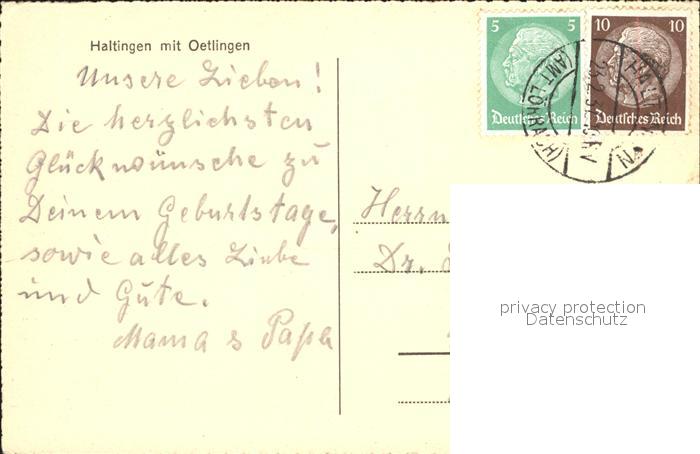 Haltingen mit Oetlingen
Unsere Lieben!
Die herzlichsten
Glückwünsche zu
Deinem Geburtstage,
sowie alles Liebe
und Gute.
Mama & Papa
5 5
Deutsches Reich
10 10
Deutsches Reich
(AMT LÖRRACH)
Herrn
Dr.
privacy protection
Datenschutz